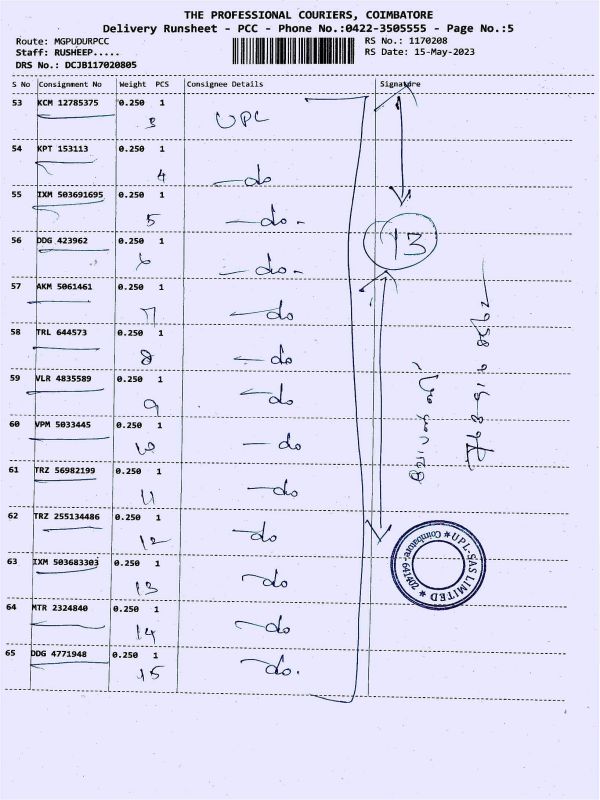 THE PROFESSIONAL COURIERS, COIMBATORE
Delivery Runsheet - PCC - Phone No.:0422-3505555 - Page No.:5
Route: MGPUDURPCC RS No.: 1170208
Staff: RUSHEEP..... RS Date: 15-May-2023
DRS No.: DCJB117020805
S No Consignment No Weight PCS Consignee Details Signature
53 KCM 12785375 0.250 1
3 UPL
54 KPT 153113 0.250 1
4 -do
55 IXM 503691695 0.250 1
5 -do-
13
56 DDG 423962 0.250 1
6 -do-
57 AKM 5061461 0.250 1
7 -do
58 TRL 644573 0.250 1
8 -do
59 VLR 4835589 0.250 1
9 -do
60 VPM 5033445 0.250 1
10 -do
61 TRZ 56982199 0.250 1
11 -do
62 TRZ 255134486 0.250 1
12 -do
63 IXM 503683303 0.250 1
13 -do
64 MTR 2324840 0.250 1
14 -do
65 DDG 4771948 0.250 1
15 -do.
UPL-SAS LIMITED
Coimbatore-641402